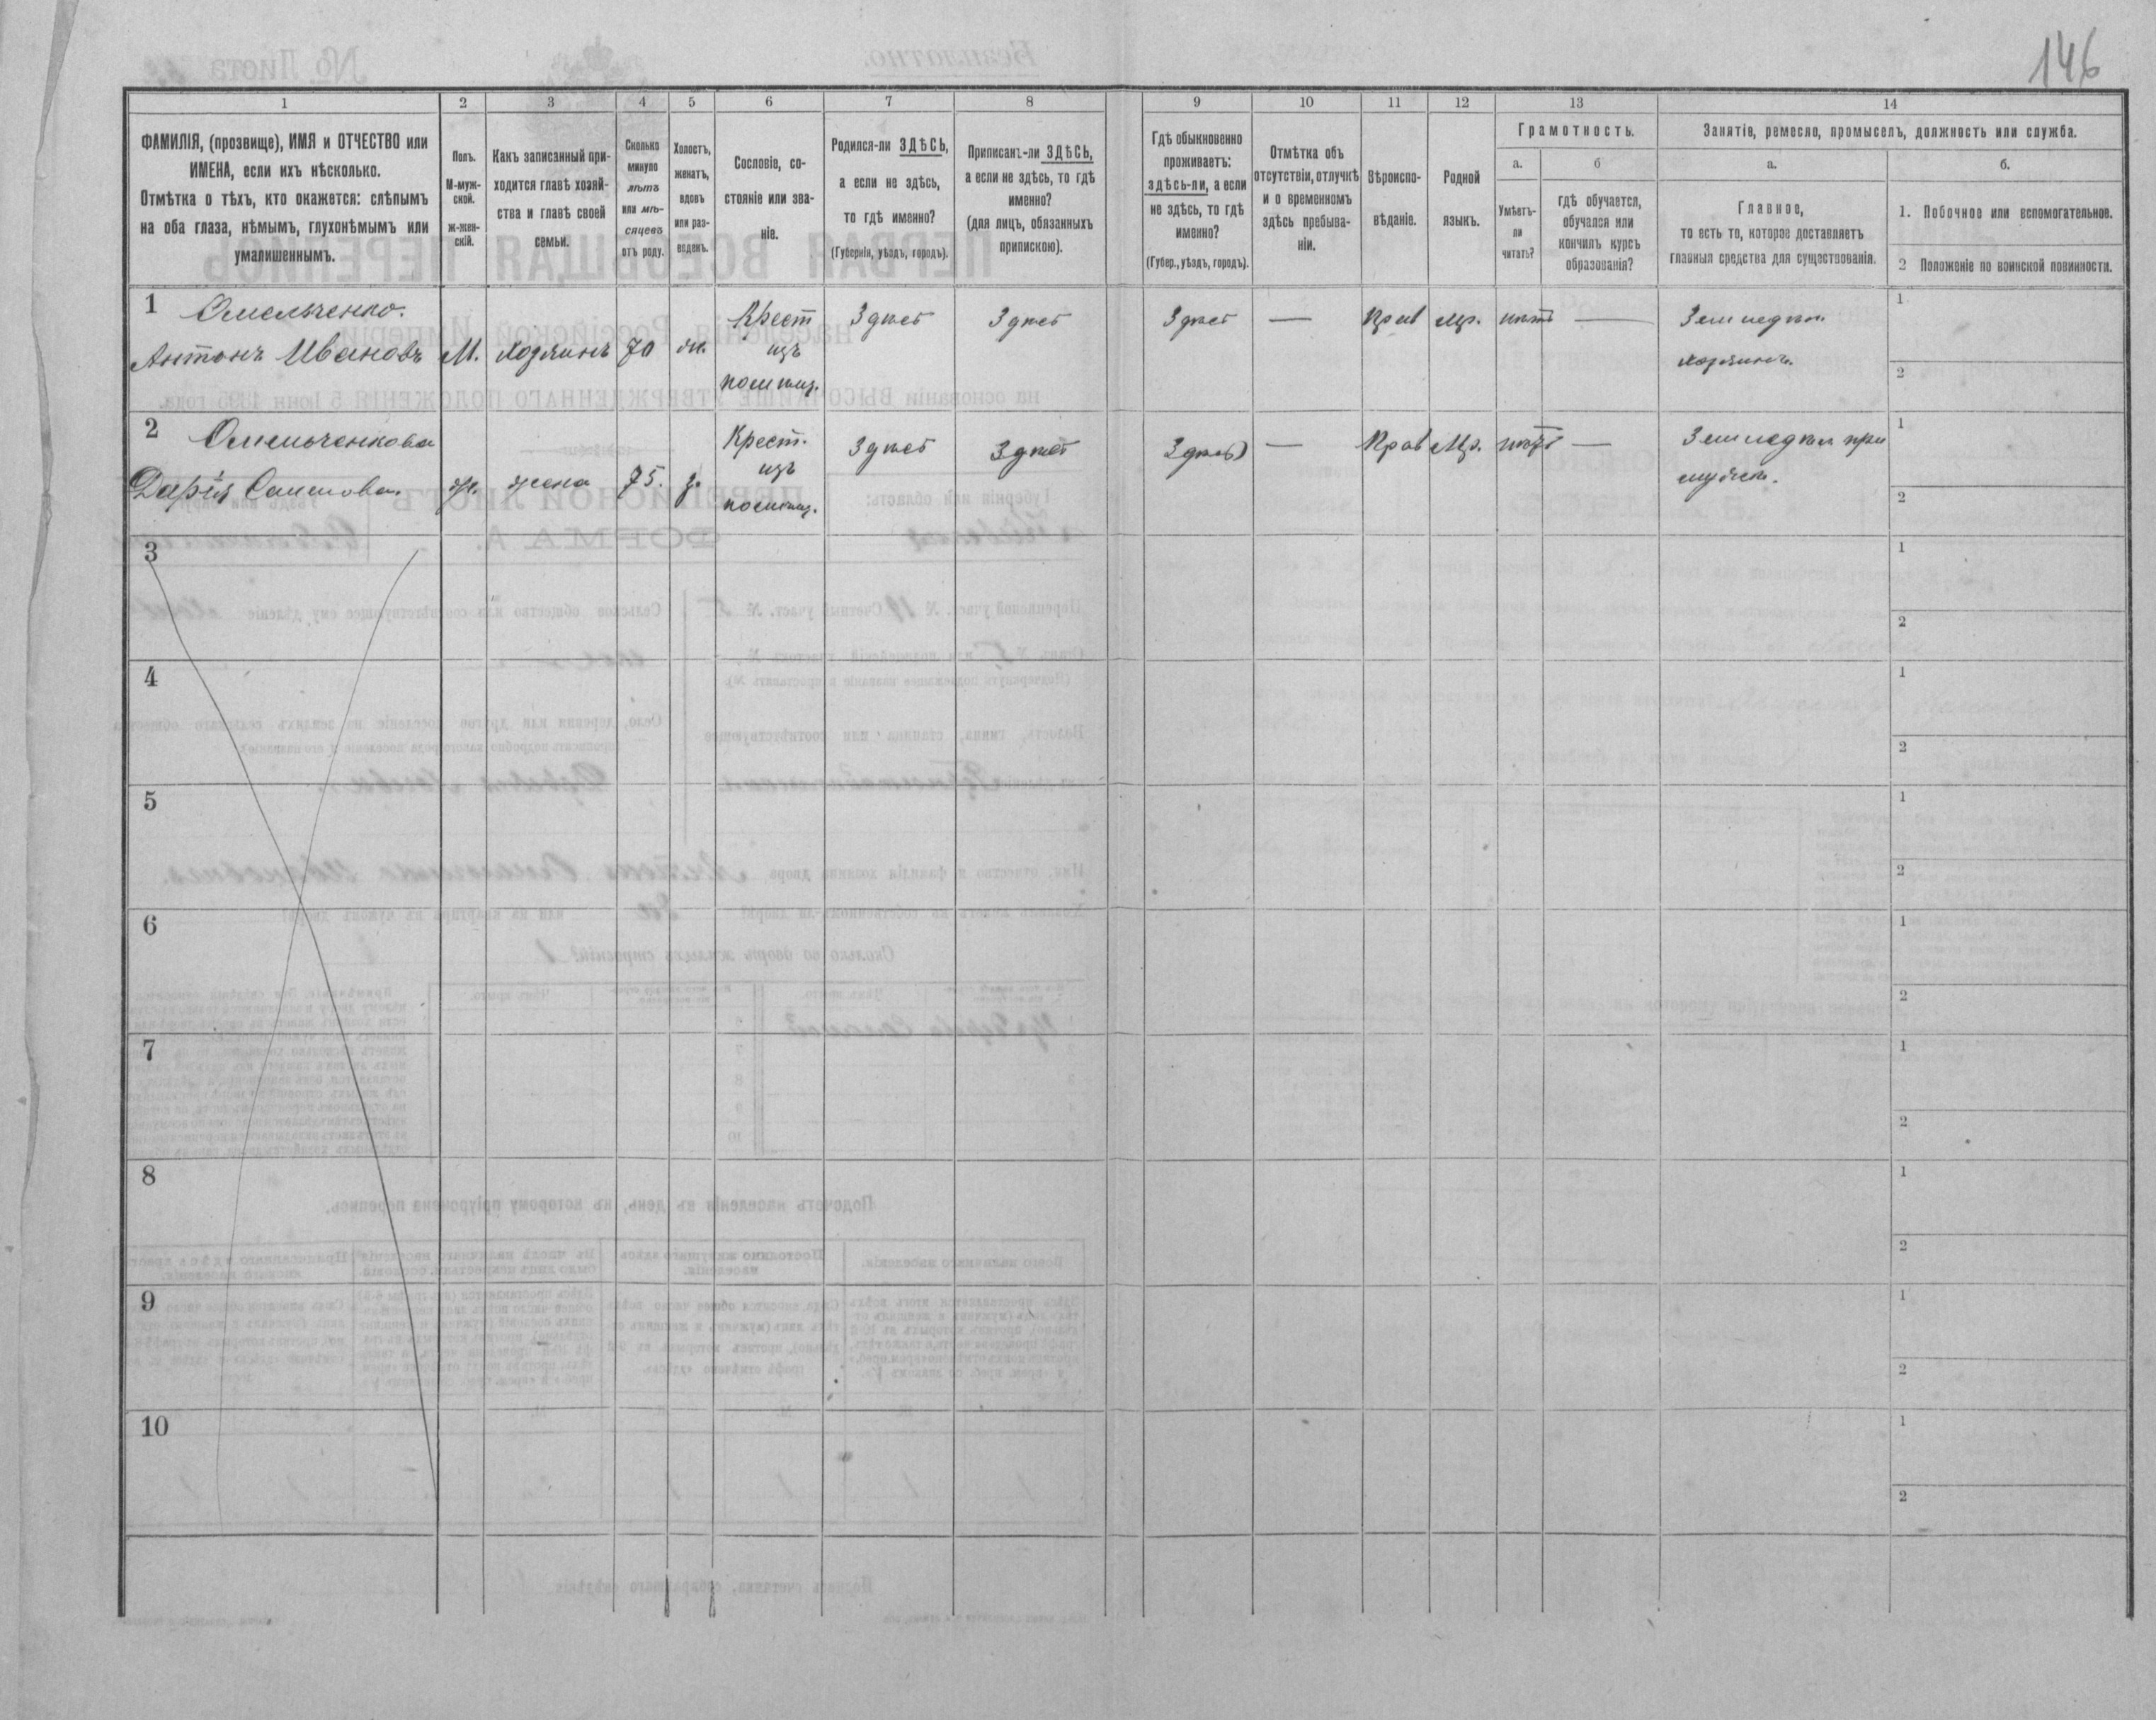 146
1 2 3 4 5 6 7 8 9 10 11 12 13 14
ФАМИЛІЯ, (прозвище), ИМЯ и ОТЧЕСТВО или
ИМЕНА, если ихъ нѣсколько.
Отмѣтка о тѣхъ, кто окажется: слѣпымъ
на оба глаза, нѣмымъ, глухонѣмымъ или
умалишеннымъ.
Полъ.
М-муж-
ской.
ж-жен-
скій.
Какъ записанный при-
ходится главѣ хозяй-
ства и главѣ своей
семьи.
Сколько
минуло
лѣтъ
или мѣ-
сяцевъ
отъ роду.
Холостъ,
женатъ,
вдовъ
или раз-
веденъ.
Сословіе, со-
стояніе или зва-
ніе.
Родился-ли ЗДѢСЬ,
а если не здѣсь,
то гдѣ именно?
(Губернія, уѣздъ, городъ).
Приписанъ-ли ЗДѢСЬ,
а если не здѣсь, то гдѣ
именно?
(для лицъ, обязанныхъ
припискою).
Гдѣ обыкновенно
проживаетъ:
здѣсь-ли, а если
не здѣсь, то гдѣ
именно?
(Губер., уѣздъ, городъ).
Отмѣтка объ
отсутствіи, отлучкѣ
и о временномъ
здѣсь пребыва-
ніи.
Вѣроиспо-
вѣданіе.
Родной
языкъ.
Грамотность.
а.
Умѣетъ-
ли
читать?
б
гдѣ обучается,
обучался или
кончилъ курсъ
образованія?
Занятіе, ремесло, промыселъ, должность или служба.
а.
Главное,
то есть то, которое доставляетъ
главныя средства для существованія.
б.
1. Побочное или вспомогательное.
2 Положеніе по воинской повинности.
1 Омельченко.
Антонъ Ивановъ
М.
хозяинъ
70
ж.
Крест
изъ
помѣщ.
Здѣсь
Здѣсь
Здѣсь
—
Прав
Мр.
нѣтъ
—
Земледѣл.
хозяинъ.
1
2
2 Омельченкова
Дарія Саммова.
ж.
жена
75.
з.
Крест.
изъ
помѣщ.
Здѣсь
Здѣсь
Здѣсь
—
Прав
Мр.
нѣтъ
—
Земледѣл. при
мужѣ.
1
2
3
1
2
4
1
2
5
1
2
6
1
2
7
1
2
8
1
2
9
1
2
10
1
2